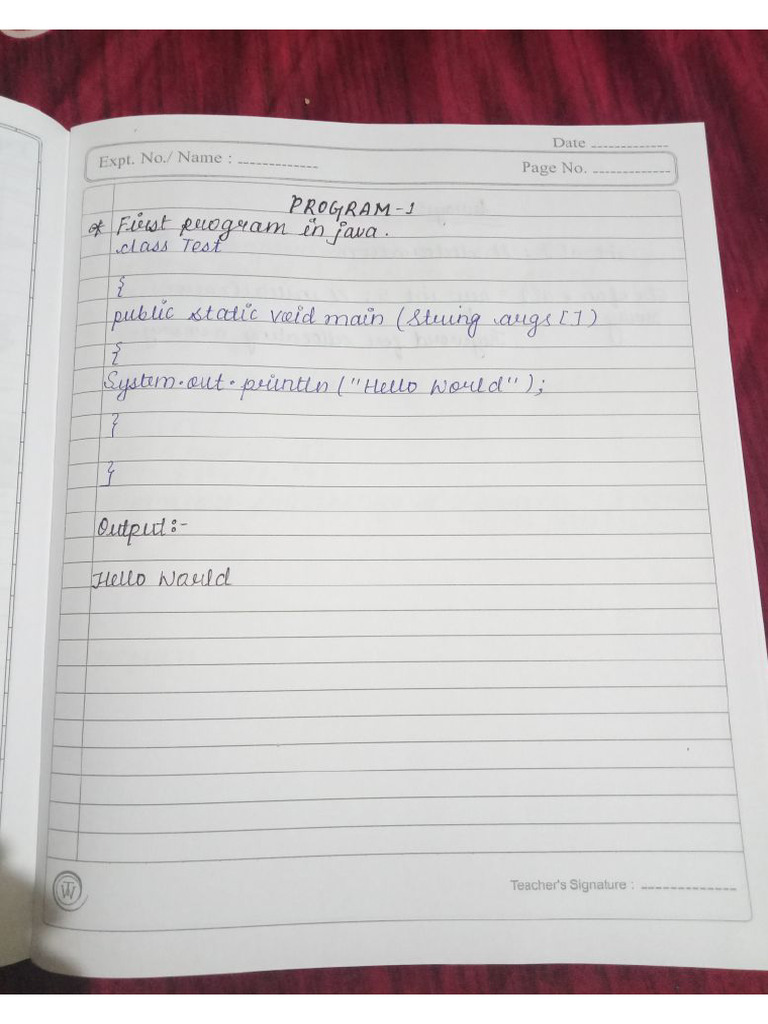 Date
Expt. No./ Name :
Page No.
PROGRAM-1
* First program in java.
class Test
{
public static void main (String args [])
{
System.out.println ("Hello World");
}
}
Output:-
Hello World
Teacher's Signature :